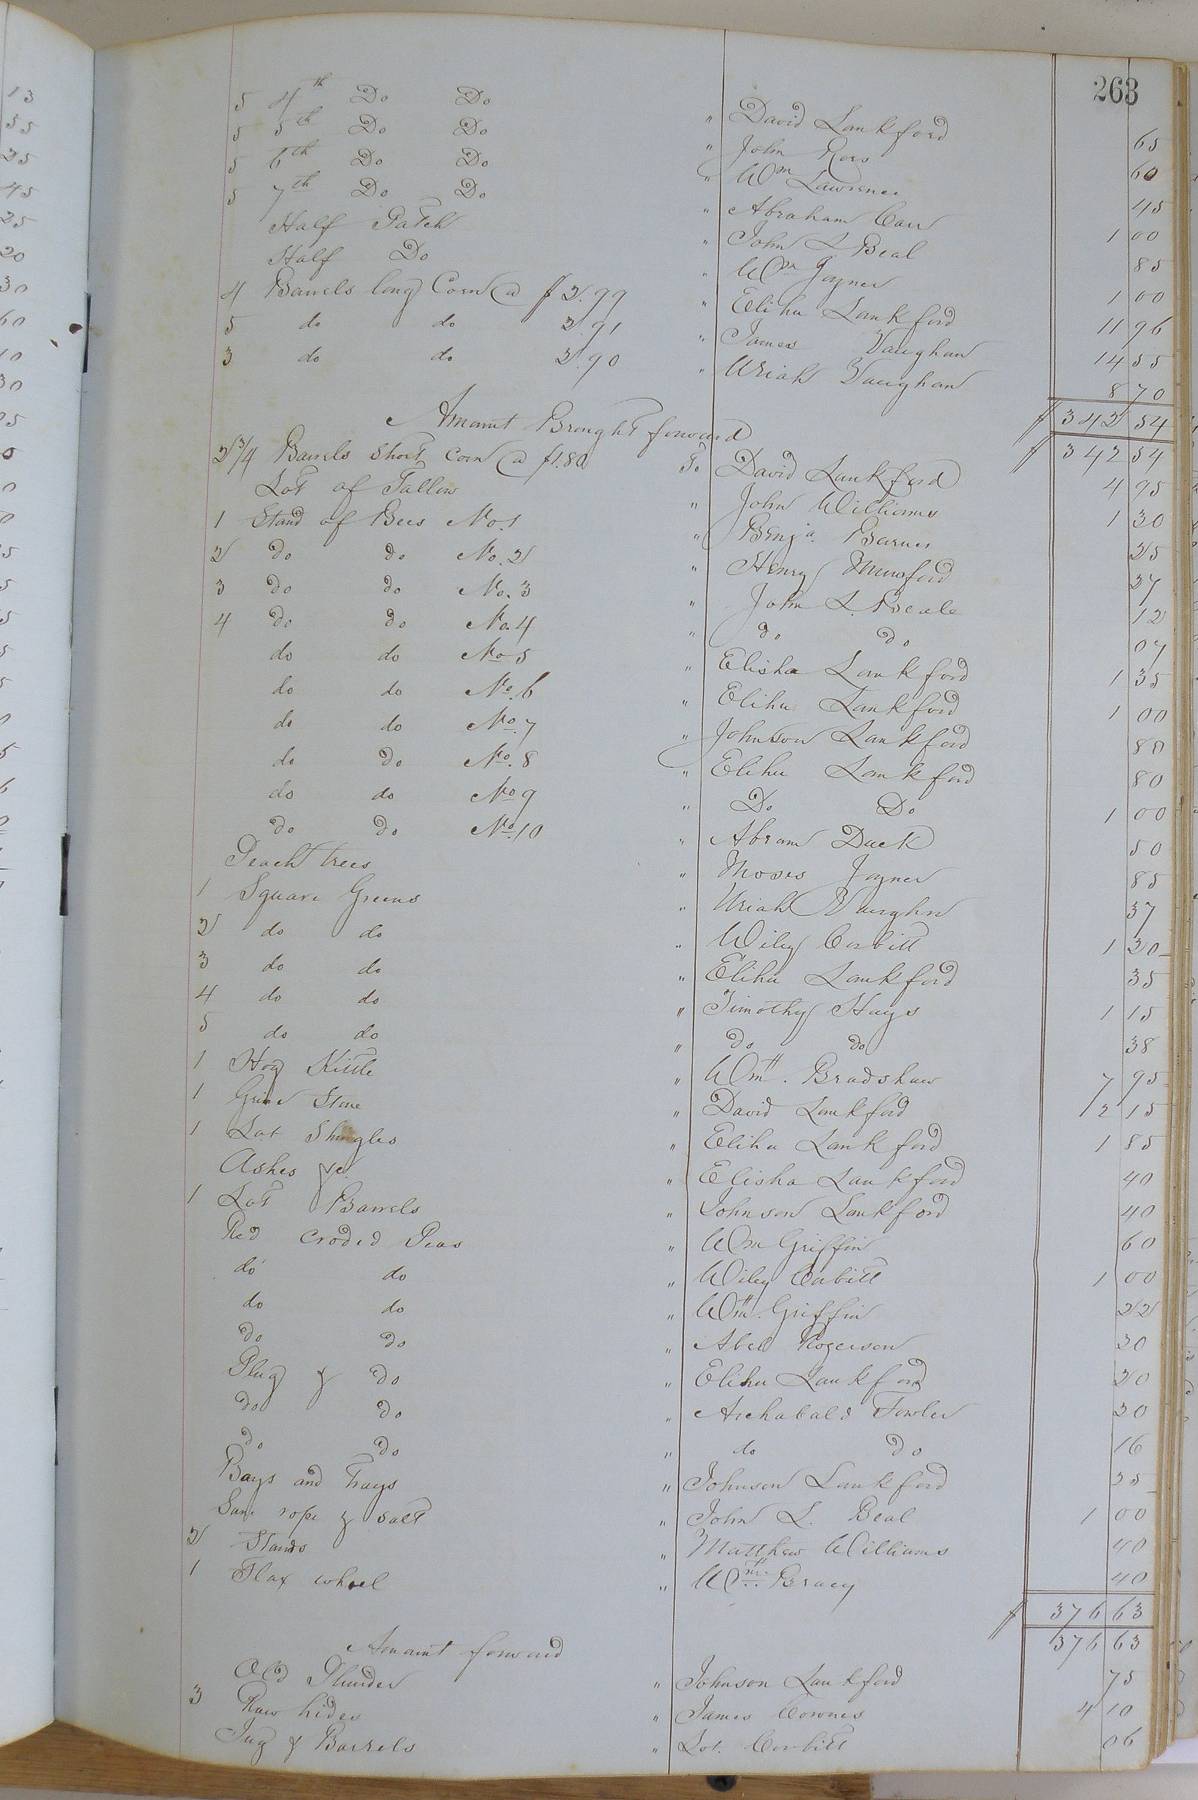 263
5 4th Do Do " David Lankford 65
5 5th Do Do " John Ross 60
5 6th Do Do " Wm Lawrence 45
5 7th Do Do " Abraham Carr 1 00
Half Patch " John L Beal 85
Half Do " Wm Joyner 1 00
4 Barrels long Corn @ $2.99 " Elihu Lankford 11 96
5 do do 2.91 " James Vaughan 14 55
3 do do 2.90 " Uriah Vaughan 8 70
$ 342 54
Amount Brought forward $ 342 54
2 3/4 Barrels short corn @ $1.80 To David Lankford 4 95
Lot of Tallow " John Williams 1 30
1 Stand of Bees No. 1 " Benja. Barnes 25
2 do do No. 2 " Henry Mumford 27
3 do do No. 3 " John L. Beale 12
4 do do No. 4 " do do 07
do do No 5 " Elisha Lankford 1 35
do do No. 6 " Elihu Lankford 1 00
do do No. 7 " Johnson Lankford 80
do do No. 8 " Elihu Lankford 80
do do No 9 " Do Do 1 00
do do No. 10 " Abram Duck 50
Peach trees " Moses Joyner 85
1 Square Greens " Uriah Vaughn 37
2 do do " Wiley Corbitt 1 20
3 do do " Elihu Lankford 35
4 do do " Timothy Hays 1 15
5 do do " do do 38
1 Hog Kittle " Wm. Bradshaw 7 95
1 Grine Stone " David Lankford 2 15
1 Lot Shingles " Elihu Lankford 1 85
Ashes &c " Elisha Lankford 40
1 Lot Barrels " Johnson Lankford 40
Red Peas " Wm Griffin 60
do do " Wiley Corbitt 1 00
do do " Wm. Griffin 22
do do " Abel Rogerson 20
Plug & do " Elihu Lankford 20
do do " Archabald Fowler 20
do do " do do 16
Bags and Trays " Johnson Lankford 25
rope & salt " John L. Beal 1 00
2 Stands " Matthew Williams 40
1 Flax wheel " Wm. Bracy 40
$ 376 63
Amount forward 376 63
Old Plunder " Johnson Lankford 75
3 Raw hides " James 4 10
Jug & Barrels " Lot. Corbitt 06
13
55
25
45
25
20
30
60
10
30